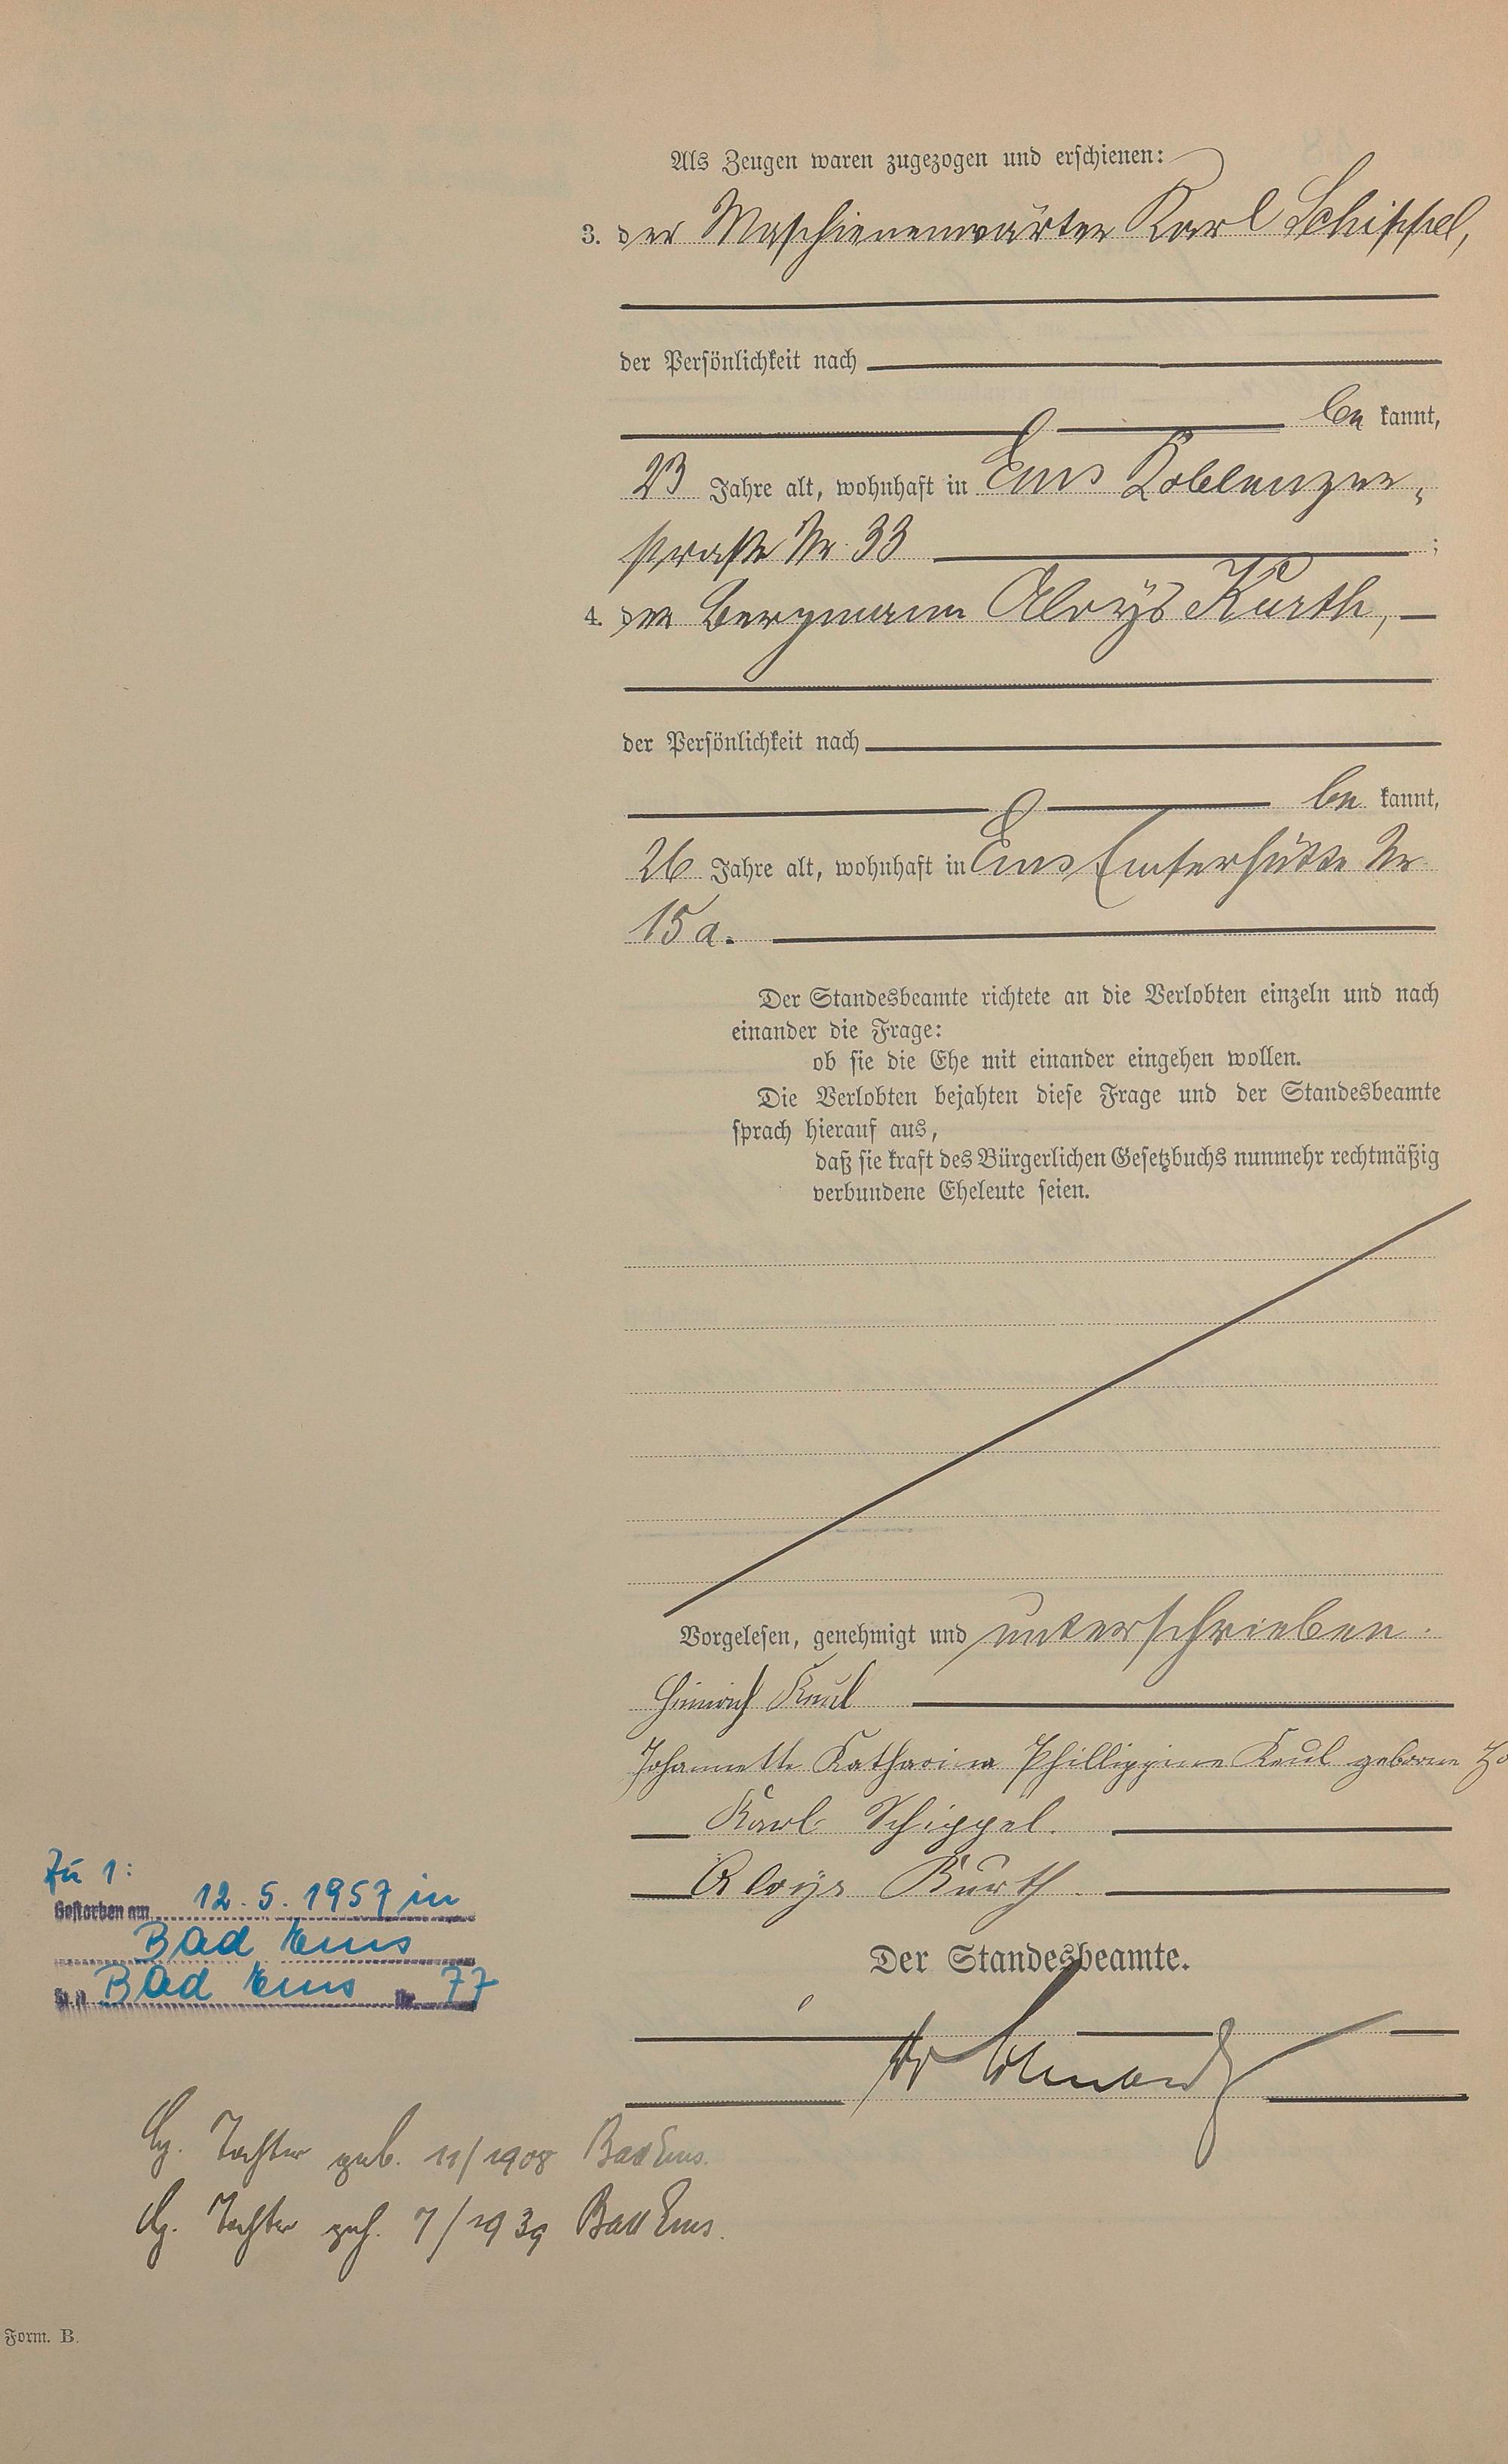 Als Zeugen waren zugezogen und erschienen:
3. der Maschienenwärter Karl Schippel,
der Persönlichkeit nach
be kannt,
23 Jahre alt, wohnhaft in Ems Koblenzer-
straße Nr. 33 ;
4. der Bergmann Aloys Kurth,
der Persönlichkeit nach
be kannt,
26 Jahre alt, wohnhaft in Ems Emserhütte Nr
15 a.
Der Standesbeamte richtete an die Verlobten einzeln und nach
einander die Frage:
ob sie die Ehe mit einander eingehen wollen.
Die Verlobten bejahten diese Frage und der Standesbeamte
sprach hierauf aus,
daß sie kraft des Bürgerlichen Gesetzbuchs nunmehr rechtmäßig
verbundene Eheleute seien.
Vorgelesen, genehmigt und unterschrieben.
Heinrich Keul
Johannette Katharina Phillippine Keul geborne
Karl Schippel.
Aloys Kurth.
Der Standesbeamte.
Zu 1:
Gestorben am 12.5.1957 in
Bad Ems
St.A. Bad Ems Nr. 77
Tochter geb. 11/1908 Bad Ems.
Tochter geh. 7/1939 Bad Ems.
Form. B.